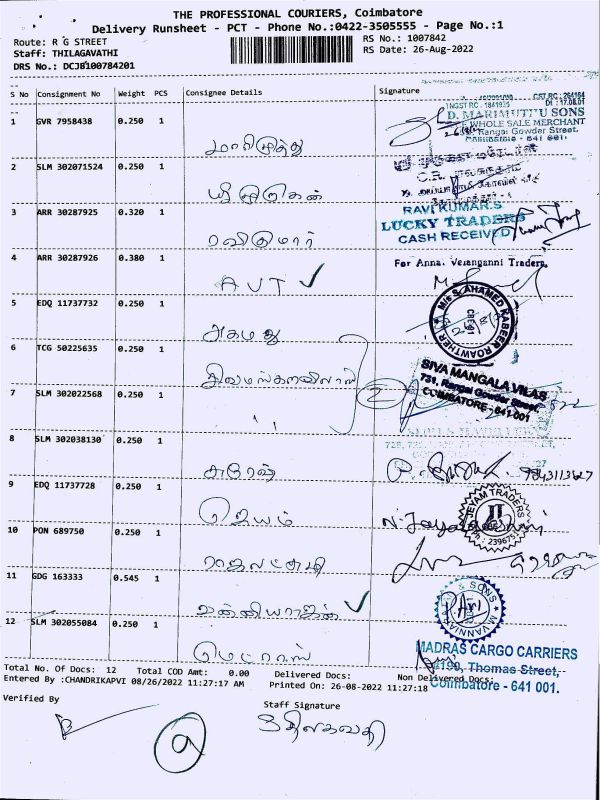 THE PROFESSIONAL COURIERS, Coimbatore
Delivery Runsheet - PCT - Phone No.:0422-3505555 - Page No.:1
Route: R G STREET
RS No.: 1007842
Staff: THILAGAVATHI
RS Date: 26-Aug-2022
DRS No.: DCJB100784201
S No Consignment No Weight PCS Consignee Details Signature
1 GVR 7958438 0.250 1
மாரிமுத்து
D. MARIMUTHU SONS
WHOLE SALE MERCHANT
Rangai Gowder Street,
2 SLM 302071524 0.250 1
ஸ்ரீ முருகன்
3 ARR 30287925 0.320 1
ரவிகுமார்
RAVI KUMAR.S
LUCKY TRADERS
CASH RECEIVED
4 ARR 30287926 0.380 1
AVT ✓
For Anna. Velanganni Traders,
5 EDQ 11737732 0.250 1
அகமது
M/s S. AHAMED KABEER ROAWTHER
CBE-01
6 TCG 50225635 0.250 1
சிவமங்களவிலாஸ்
2
SIVA MANGALA VILAS
731, Rangai Gowder Street,
COIMBATORE - 641 001
7 SLM 302022568 0.250 1
8 SLM 302038130 0.250 1
சுரேஷ்
9 EDQ 11737728 0.250 1
ஜெயம்
JEYAM TRADERS
10 PON 689750 0.250 1
ராஜலட்சுமி
11 GDG 163333 0.545 1
வன்னியராஜன் ✓
12 SLM 302055084 0.250 1
மெட்ராஸ்
MADRAS CARGO CARRIERS
Thomas Street,
Coimbatore - 641 001.
Total No. Of Docs: 12 Total COD Amt: 0.00 Delivered Docs: Non Delivered Docs:
Entered By :CHANDRIKAPVI 08/26/2022 11:27:17 AM Printed On: 26-08-2022 11:27:18
Verified By
Staff Signature
திலகவதி
9